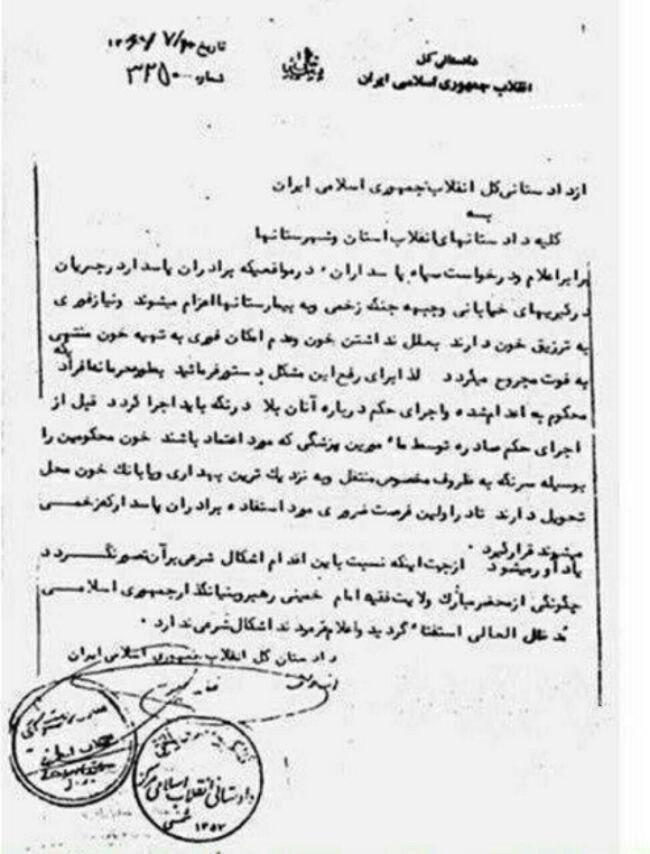 ۱
دادستانی کل
انقلاب جمهوری اسلامی ایران
تاریخ
شماره ۳۲۵۰
از دادستانی کل انقلاب جمهوری اسلامی ایران
به
کلیه دادستانهای انقلاب استان وشهرستانها
برابر اعلام ودرخواست سپاه پاسداران ، در مواقعیکه برادران پاسدار در جریان
درگیریهای خیابانی وجبهه جنگ زخمی وبه بیمارستانها اعزام میشوند ونیاز فوری
به تزریق خون دارند بعلل نداشتن خون وعدم امکان فوری به تهیه خون منتهی
به فوت مجروح میگردد لذا برای رفع این مشکل دستور فرمائید بطور محرمانه افرادیکه
محکوم به اعدام شده واجرای حکم درباره آنان بلادرنگ باید اجرا گردد قبل از
اجرای حکم صادره توسط مأمورین پزشگی که مورد اعتماد باشند خون محکومین را
بوسیله سرنگ به ظروف مخصوص منتقل وبه نزدیک ترین بهداری ویا بانک خون محل
تحویل دارند تا در اولین فرصت ضروری مورد استفاده برادران پاسدار که زخمی
میشوند قرار گیرد .
یادآور میشود از جهت اینکه نسبت باین اقدام اشکال شرعی برآن تصور نگردد
چگونگی از محضر مبارک ولایت فقیه امام خمینی رهبر وبنیانگذار جمهوری اسلامی
مدظله العالی استفتاء گردید واعلام فرمودند اشکال شرعی ندارد .
دادستان کل انقلاب جمهوری اسلامی ایران
دادستانی انقلاب اسلامی مرکز